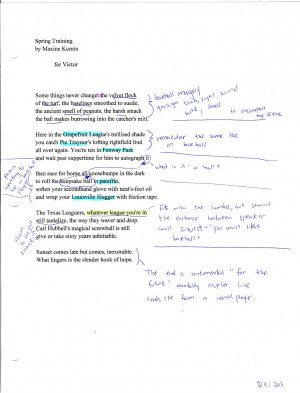 Spring Training
by Maxine Kumin
for Victor
Some things never change: the velvet flock
of the turf, the baselines smoothed to suede,
the ancient smell of peanuts, the harsh smack
the ball makes burrowing into the catcher's mitt.
baseball imagery
through touch, sight, sound
smell
to encompass
the scene
Here in the Grapefruit League's trellised shade
you catch Pie Traynor's lofting rightfield foul
all over again. You're ten in Fenway Park
and wait past suppertime for him to autograph it
vernacular the same like
in baseball
what is it - a ball?
then race for home all goosebumps in the dark
to roll the keepsake ball in paraffin,
soften your secondhand glove with neat's-foot oil
and wrap your Louisville Slugger with friction tape.
The Texas Leaguers, whatever league you're in
still tantalize, the way they waver and drop.
Carl Hubbell's magical screwball is still
give or take sixty years unhittable.
the distance between speaker
and subject - "you must like
baseball"
Sunset comes late but comes, inexorable.
What lingers is the slender hook of hope.
The end is sentimental "for the
couplet. Line
reads like from a